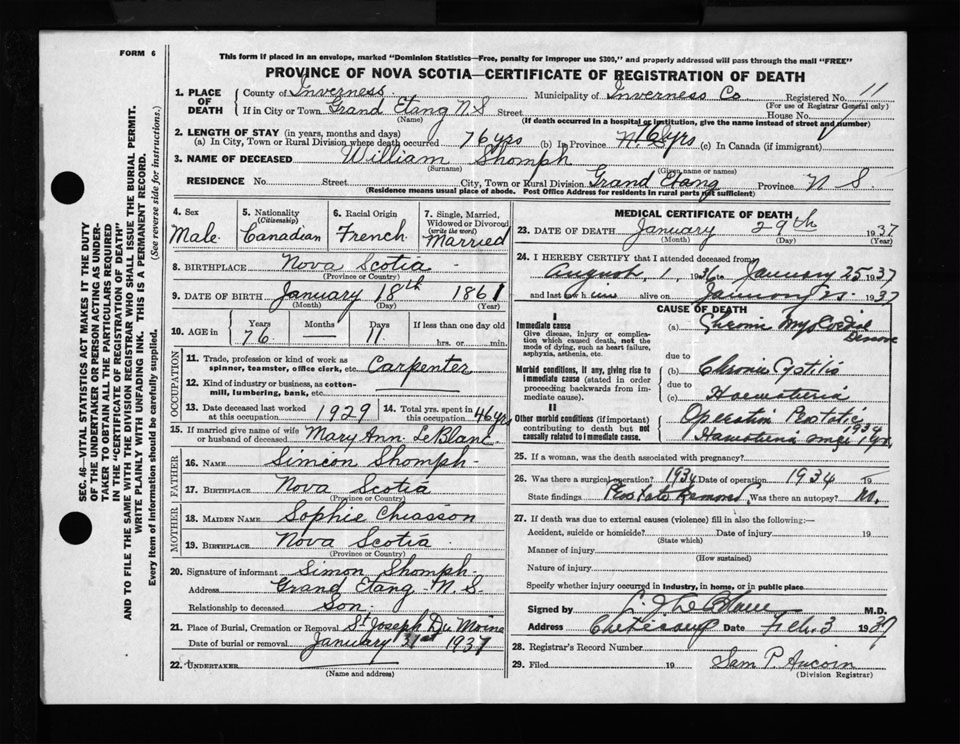 FORM 6
This form if placed in an envelope, marked "Dominion Statistics—Free, penalty for improper use $300," and properly addressed will pass through the mail "FREE"
PROVINCE OF NOVA SCOTIA—CERTIFICATE OF REGISTRATION OF DEATH
1. PLACE OF DEATH
County of Inverness Municipality of Inverness Co. Registered No. 11
(For use of Registrar General only)
If in City or Town Grand Etang N S Street House No.
(Name) (If death occurred in a hospital or institution, give the name instead of street and number)
2. LENGTH OF STAY (in years, months and days)
(a) In City, Town or Rural Division where death occurred 76 yrs (b) In Province 76 yrs (c) In Canada (if immigrant)
3. NAME OF DECEASED William Shomph
(Surname) (Given name or names)
RESIDENCE No. Street City, Town or Rural Division Grand Etang Province N S.
(Residence means usual place of abode. Post Office Address for residents in rural parts not sufficient)
4. Sex
Male
5. Nationality
(Citizenship)
Canadian
6. Racial Origin
French
7. Single, Married, Widowed or Divorced
(write the word)
Married
8. BIRTHPLACE Nova Scotia
(Province or Country)
9. DATE OF BIRTH January 18th 1861
(Month) (Day) (Year)
10. AGE in
Years Months Days If less than one day old
76 — 11 hrs. or min.
OCCUPATION
11. Trade, profession or kind of work as spinner, teamster, office clerk, etc. Carpenter
12. Kind of industry or business, as cotton-mill, lumbering, bank, etc.
13. Date deceased last worked at this occupation 1929
14. Total yrs. spent in this occupation 46 yrs
15. If married give name of wife or husband of deceased Mary Ann LeBlanc
FATHER
16. NAME Simeon Shomph
17. BIRTHPLACE Nova Scotia
(Province or Country)
MOTHER
18. MAIDEN NAME Sophie Chiasson
19. BIRTHPLACE Nova Scotia
(Province or Country)
20. Signature of informant Simon Shomph
Address Grand Etang N. S.
Relationship to deceased Son.
21. Place of Burial, Cremation or Removal St Joseph Du Moine
Date of burial or removal January 31st 1937
22. UNDERTAKER
(Name and address)
MEDICAL CERTIFICATE OF DEATH
23. DATE OF DEATH January 29th 1937
(Month) (Day) (Year)
24. I HEREBY CERTIFY that I attended deceased from
August 1, 1936 to January 25 1937
and last saw him alive on January 25. 1937
CAUSE OF DEATH
I
Immediate cause
Give disease, injury or complication which caused death, not the mode of dying, such as heart failure, asphyxia, asthenia, etc.
(a)
due to
Morbid conditions, if any, giving rise to immediate cause (stated in order proceeding backwards from immediate cause).
(b) Chronic
due to
(c) Haematuria
II
Other morbid conditions (if important) contributing to death but not causally related to immediate cause.
Operation 1934
25. If a woman, was the death associated with pregnancy?
26. Was there a surgical operation? 1934 Date of operation 1934 19
State findings Removed Was there an autopsy? No.
27. If death was due to external causes (violence) fill in also the following:—
Accident, suicide or homicide? Date of injury 19
(State which)
Manner of injury
(How sustained)
Nature of injury
Specify whether injury occurred in industry, in home, or in public place
Signed by M.D.
Address Cheticamp Date Feb 3 1937
28. Registrar's Record Number
29. Filed 19 Sam P. Aucoin
(Division Registrar)
SEC. 46—VITAL STATISTICS ACT MAKES IT THE DUTY
OF THE UNDERTAKER OR PERSON ACTING AS UNDER-
TAKER TO OBTAIN ALL THE PARTICULARS REQUIRED
IN THE "CERTIFICATE OF REGISTRATION OF DEATH"
AND TO FILE THE SAME WITH THE DIVISION REGISTRAR WHO SHALL ISSUE THE BURIAL PERMIT.
WRITE PLAINLY WITH UNFADING INK. THIS IS A PERMANENT RECORD.
Every item of information should be carefully supplied. (See reverse side for instructions.)